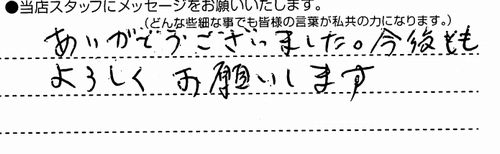 ●当店スタッフにメッセージをお願いいたします。
(どんな些細な事でも皆様の言葉が私共の力になります。)
ありがとうございました。今後とも
よろしくお願いします